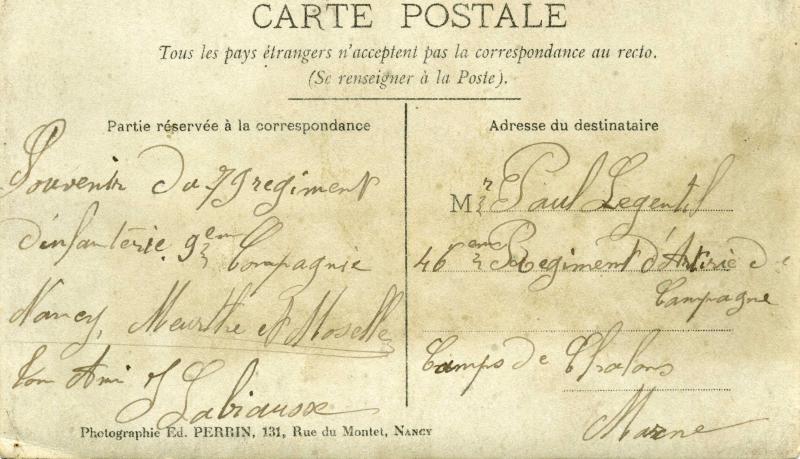 CARTE POSTALE
Tous les pays étrangers n'acceptent pas la correspondance au recto.
(Se renseigner à la Poste).
Partie réservée à la correspondance
Souvenir du 79 regiment
d'infanterie. 9em Compagnie
Nancy, Meurthe et Moselle
Ton Ami J Labiausse
Photographie Ed. PERRIN, 131, Rue du Montet, NANCY
Adresse du destinataire
Mr Paul Legentil
46em Regiment d'Artrie de
Campagne
Camps de Chalons
Marne